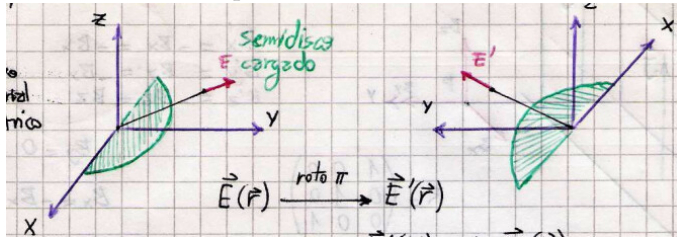 Z
semidisco
cargado
E
Y
X
Z
X
E'
Y
E⃗(r⃗) roto π → E⃗'(r⃗)